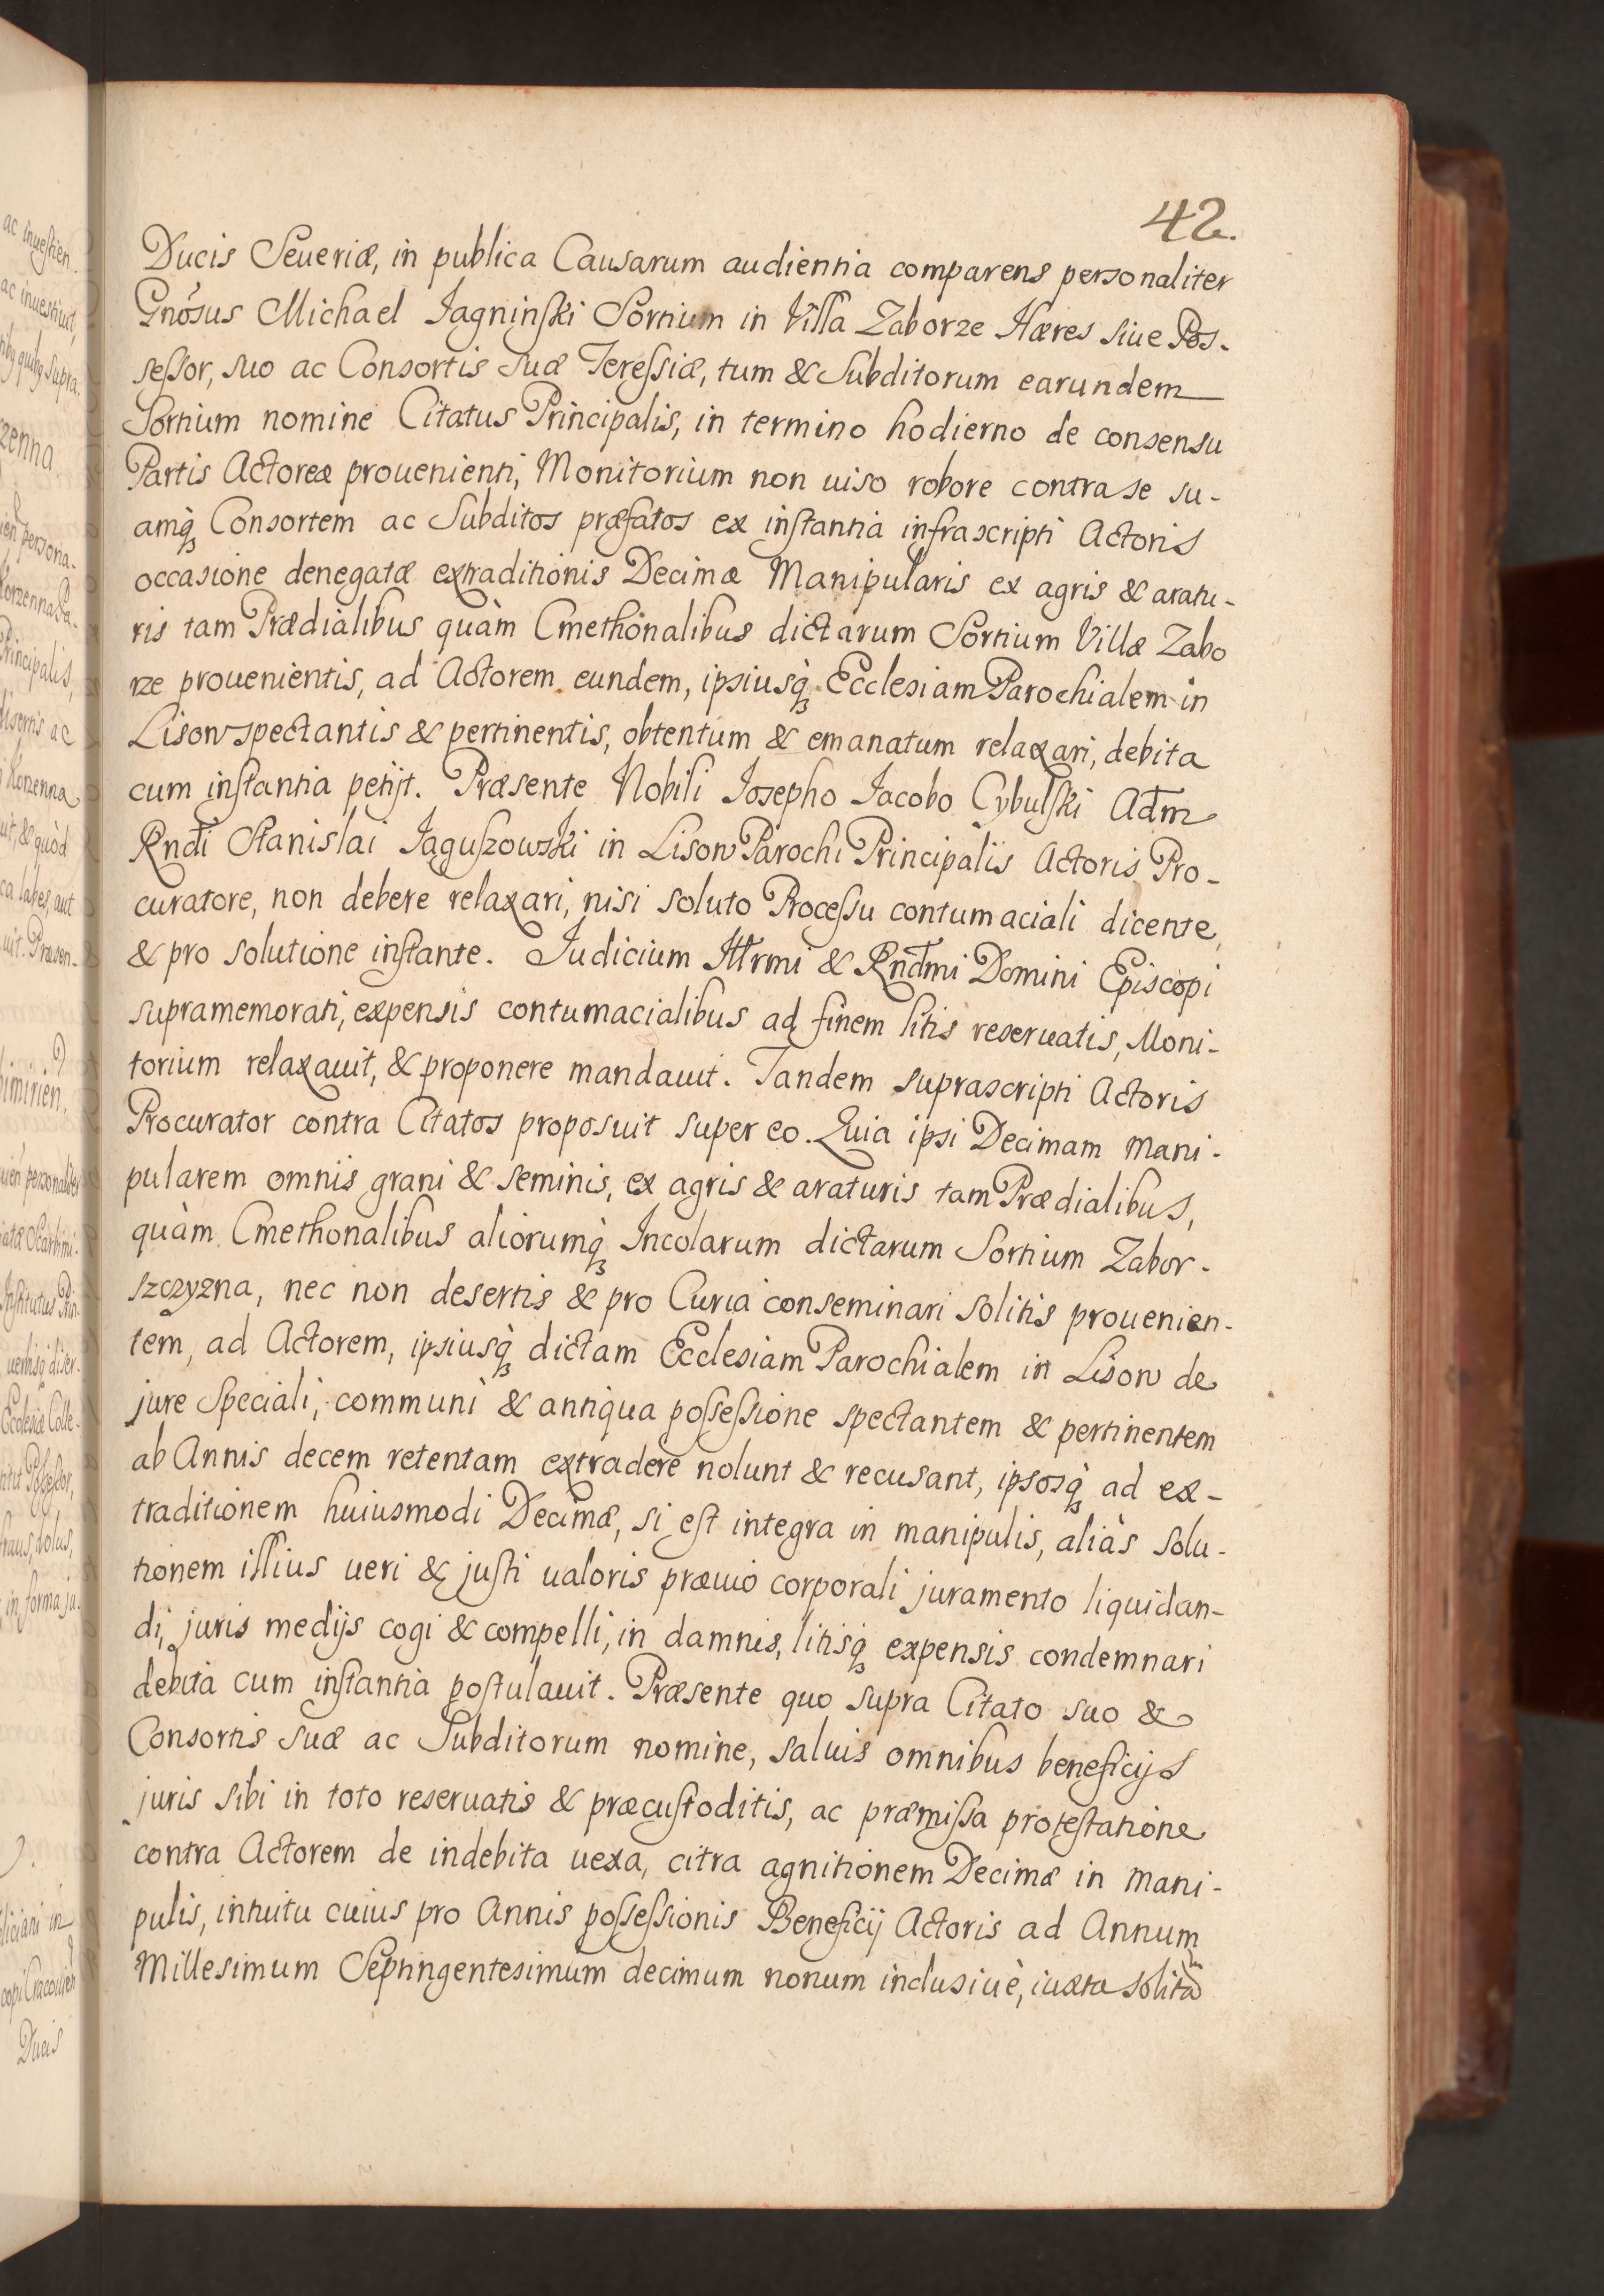 42.
Ducis Seueriæ, in publica Causarum audientia comparens personaliter
Gnosus Michael Jagninski Sortium in Villa Zaborze Hæres siue Pos-
sessor, suo ac Consortis suæ Teressiæ, tum & Subditorum earundem
Sortium nomine Citatus Principalis, in termino hodierno de consensu
Partis Actoreæ prouenienti, Monitorium non uiso robore contra se su-
amq₃ Consortem ac Subditos præfatos ex instantia infrascripti Actoris
occasione denegatæ extraditionis Decimæ Manipularis ex agris & aratu-
ris tam Prædialibus quàm Cmethonalibus dictarum Sortium Villæ Zabo
rze prouenientis, ad Actorem eundem, ipsiusq₃ Ecclesiam Parochialem in
Lisow spectantis & pertinentis, obtentum & emanatum relaxari, debita
cum instantia petijt. Præsente Nobili Josepho Jacobo Cybulski Adm
Rndi Stanislai Jaguszowski in Lisow Parochi Principalis Actoris Pro-
curatore, non debere relaxari, nisi soluto Processu contumaciali dicente,
& pro solutione instante. Judicium Illrmi & Rndmi Domini Episcopi
supramemorati, expensis contumacialibus ad finem litis reseruatis, Moni-
torium relaxauit, & proponere mandauit. Tandem suprascripti Actoris
Procurator contra Citatos proposuit super eo. Quia ipsi Decimam Mani-
pularem omnis grani & seminis, ex agris & araturis tam Prædialibus,
quàm Cmethonalibus aliorumq₃ Incolarum dictarum Sortium Zabor-
szczyzna, nec non desertis & pro Curia conseminari solitis prouenien-
tem, ad Actorem, ipsiusq₃ dictam Ecclesiam Parochialem in Lisow de
jure speciali, communi & antiqua possessione spectantem & pertinentem
ab Annis decem retentam extradere nolunt & recusant, ipsosq₃ ad ex-
traditionem huiusmodi Decimæ, si est integra in manipulis, aliàs solu-
tionem illius ueri & justi ualoris præuio corporali juramento liquidan-
di, juris medijs cogi & compelli, in damnis, litisq₃ expensis condemnari
debita cum instantia postulauit. Præsente quo supra Citato suo &
Consortis suæ ac Subditorum nomine, saluis omnibus beneficijs
juris sibi in toto reseruatis & præcustoditis, ac præmissa protestatione
contra Actorem de indebita uexa, citra agnitionem Decimæ in Mani-
pulis, intuitu cuius pro Annis possessionis Beneficij Actoris ad Annum
Millesimum Septingentesimum decimum nonum inclusiuè, iuxta solitã